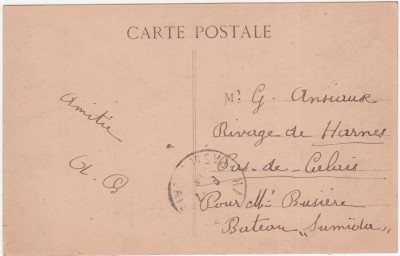 CARTE POSTALE
Mr G. Ansiaux
Rivage de Harnes
Pas-de-Calais
Pour Mr Busière
Bateau „Sumida„
Amitié